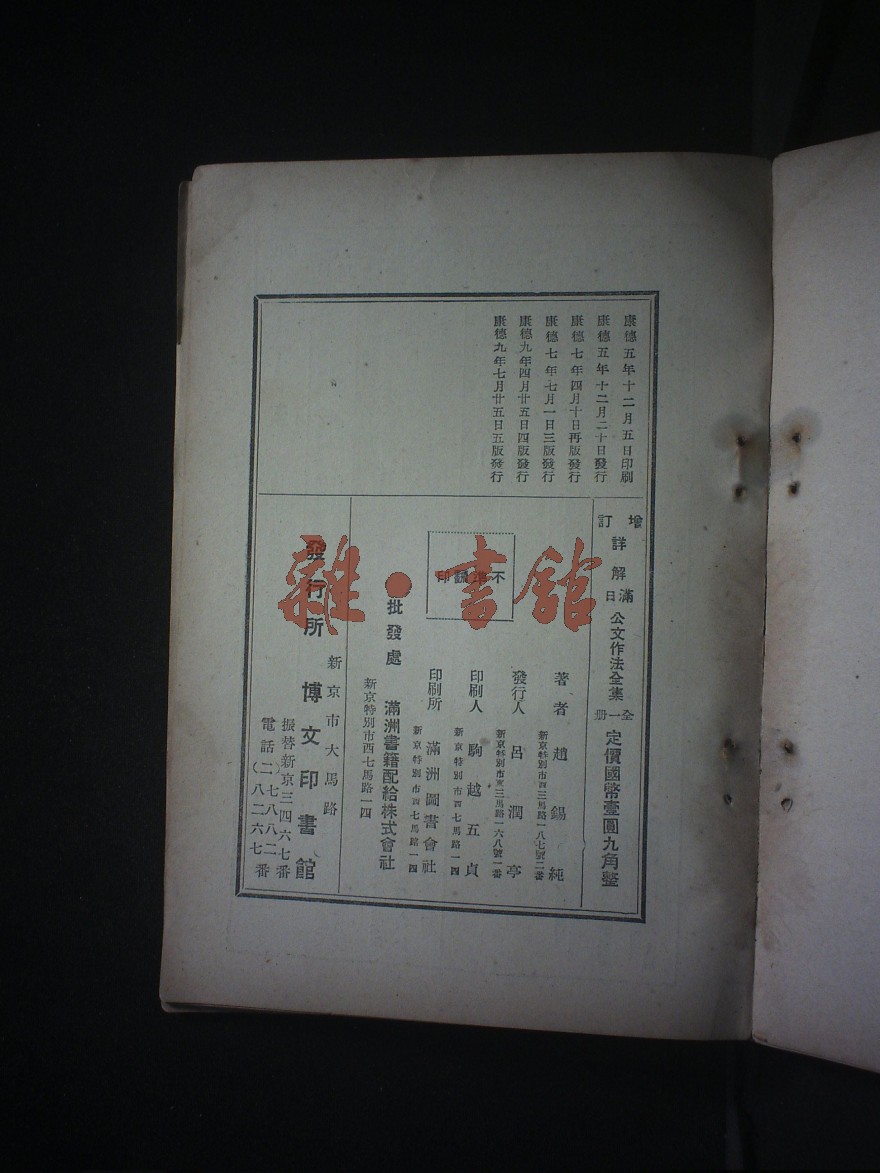 康德五年十二月五日印刷
康德五年十二月二十日發行
康德七年四月十日再版發行
康德七年七月一日三版發行
康德九年四月廿五日四版發行
康德九年七月廿五日五版發行
增訂詳解滿日公文作法全集 全一册 定價國幣壹圓九角整
著者 趙錫純
新京特別市西三馬路一八七號二番
發行人 呂潤亭
新京特別市東三馬路一六八號一番
印刷人 駒越五貞
新京特別市西七馬路一四
印刷所 滿洲圖書會社
新京特別市西七馬路一四
不準翻印
批發處 滿洲書籍配給株式會社
新京特別市西七馬路一四
新京市大馬路
發行所 博文印書館
振替新京三四六七番
電話(二)七八八二 八二六七番
雜·書館